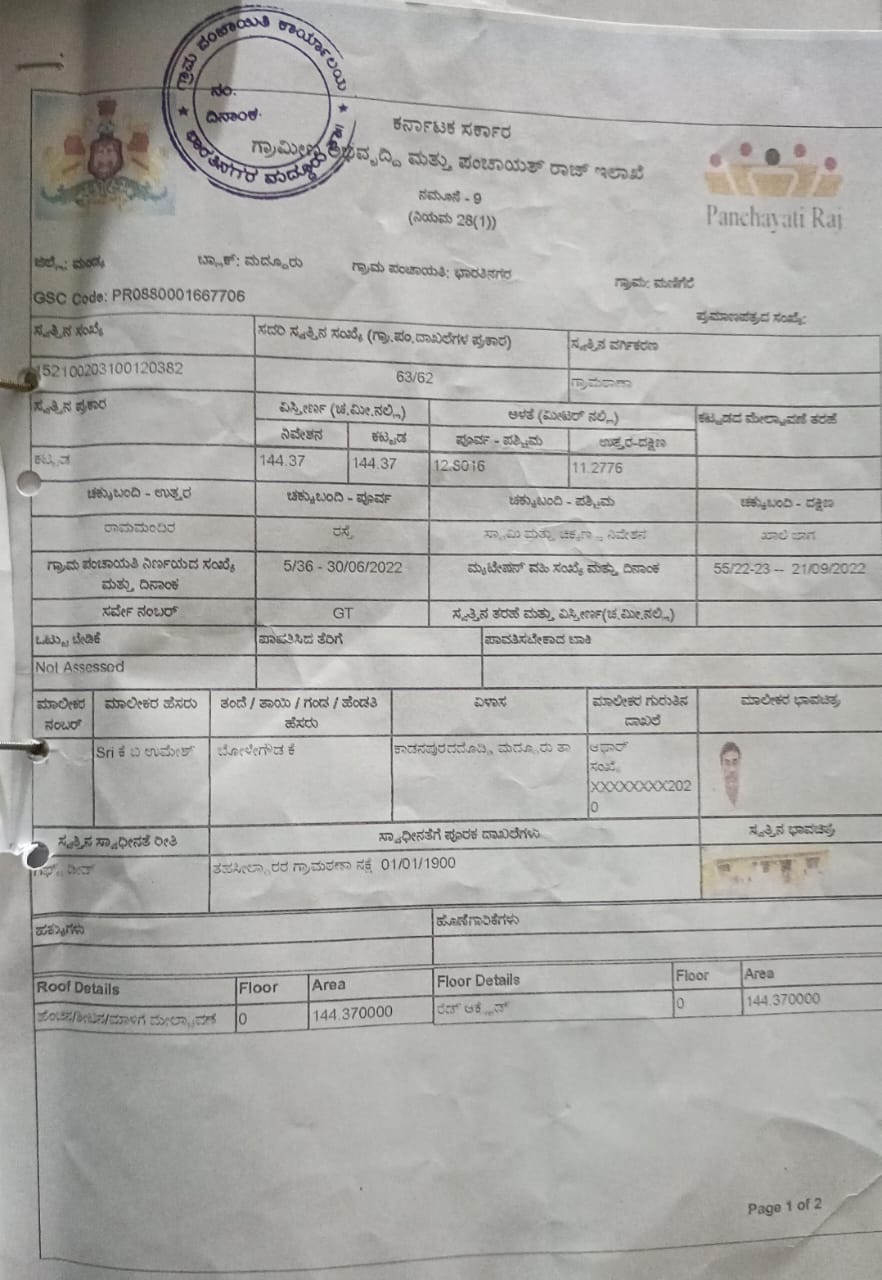 ಗ್ರಾಮ ಪಂಚಾಯಿತಿ ಕಾರ್ಯಾಲಯ
ನಂ.
ದಿನಾಂಕ.
ಭಾರತಿನಗರ ಮದ್ದೂರು
ಕರ್ನಾಟಕ ಸರ್ಕಾರ
ಗ್ರಾಮೀಣ ಅಭಿವೃದ್ದಿ ಮತ್ತು ಪಂಚಾಯತ್ ರಾಜ್ ಇಲಾಖೆ
ನಮೂನೆ - 9
(ನಿಯಮ 28(1))
Panchayati Raj
ಜಿಲ್ಲೆ: ಮಂಡ್ಯ ಬ್ಲಾಕ್: ಮದ್ದೂರು ಗ್ರಾಮ ಪಂಚಾಯತಿ: ಭಾರತಿನಗರ ಗ್ರಾಮ: ಮಣಿಗೆರೆ
GSC Code: PR0880001667706 ಪ್ರಮಾಣಪತ್ರದ ಸಂಖ್ಯೆ:
ಸ್ವತ್ತಿನ ಸಂಖ್ಯೆ ಸದರಿ ಸ್ವತ್ತಿನ ಸಂಖ್ಯೆ (ಗ್ರಾ.ಪಂ.ದಾಖಲೆಗಳ ಪ್ರಕಾರ) ಸ್ವತ್ತಿನ ವರ್ಗೀಕರಣ
152100203100120382 63/62 ಗ್ರಾಮಠಾಣಾ
ಸ್ವತ್ತಿನ ಪ್ರಕಾರ ವಿಸ್ತೀರ್ಣ (ಚ.ಮೀ.ನಲ್ಲಿ) ಅಳತೆ (ಮೀಟರ್ ನಲ್ಲಿ) ಕಟ್ಟಡದ ಮೇಲ್ಛಾವಣಿ ತರಹೆ
ನಿವೇಶನ ಕಟ್ಟಡ ಪೂರ್ವ - ಪಶ್ಚಿಮ ಉತ್ತರ-ದಕ್ಷಿಣ
ಕಟ್ಟಡ 144.37 144.37 12.8016 11.2776
ಚಕ್ಕುಬಂದಿ - ಉತ್ತರ ಚಕ್ಕುಬಂದಿ - ಪೂರ್ವ ಚಕ್ಕುಬಂದಿ - ಪಶ್ಚಿಮ ಚಕ್ಕುಬಂದಿ - ದಕ್ಷಿಣ
ರಾಮಮಂದಿರ ರಸ್ತೆ ಸ್ವಾಮಿ ಮತ್ತು ನಿವೇಶನ ಖಾಲಿ ಜಾಗ
ಗ್ರಾಮ ಪಂಚಾಯತಿ ನಿರ್ಣಯದ ಸಂಖ್ಯೆ ಮತ್ತು ದಿನಾಂಕ 5/36 - 30/06/2022 ಮ್ಯುಟೇಷನ್ ವಹಿ ಸಂಖ್ಯೆ ಮತ್ತು ದಿನಾಂಕ 55/22-23 -- 21/09/2022
ಸರ್ವೇ ನಂಬರ್ GT ಸ್ವತ್ತಿನ ತರಹೆ ಮತ್ತು ವಿಸ್ತೀರ್ಣ(ಚ.ಮೀ.ನಲ್ಲಿ)
ಒಟ್ಟು ಬೇಡಿಕೆ ಪಾವತಿಸಿದ ತೆರಿಗೆ ಪಾವತಿಸಬೇಕಾದ ಬಾಕಿ
Not Assessed
ಮಾಲೀಕರ ನಂಬರ್ ಮಾಲೀಕರ ಹೆಸರು ತಂದೆ / ತಾಯಿ / ಗಂಡ / ಹೆಂಡತಿ ಹೆಸರು ವಿಳಾಸ ಮಾಲೀಕರ ಗುರುತಿನ ದಾಖಲೆ ಮಾಲೀಕರ ಭಾವಚಿತ್ರ
Sri ಕೆ ಬಿ ಉಮೇಶ್ ಬೋಳೇಗೌಡ ಕೆ ಕಾಡನಪುರದದೊಡ್ಡಿ ಮದ್ದೂರು ತಾ ಆಧಾರ್ ಸಂಖ್ಯೆ XXXXXXXX2020
ಸ್ವತ್ತಿನ ಸ್ವಾಧೀನತೆ ರೀತಿ ಸ್ವಾಧೀನತೆಗೆ ಪೂರಕ ದಾಖಲೆಗಳು ಸ್ವತ್ತಿನ ಭಾವಚಿತ್ರ
ಗಿಫ್ಟ್ ಡೀಡ್ ತಹಸೀಲ್ದಾರರ ಗ್ರಾಮಠಾಣಾ ನಕ್ಷೆ 01/01/1900
ಹಕ್ಕುಗಳು ಹೊಣೆಗಾರಿಕೆಗಳು
Roof Details Floor Area Floor Details Floor Area
0 144.370000 ರೆಡ್ ಆಕ್ಸೈಡ್ 0 144.370000
Page 1 of 2